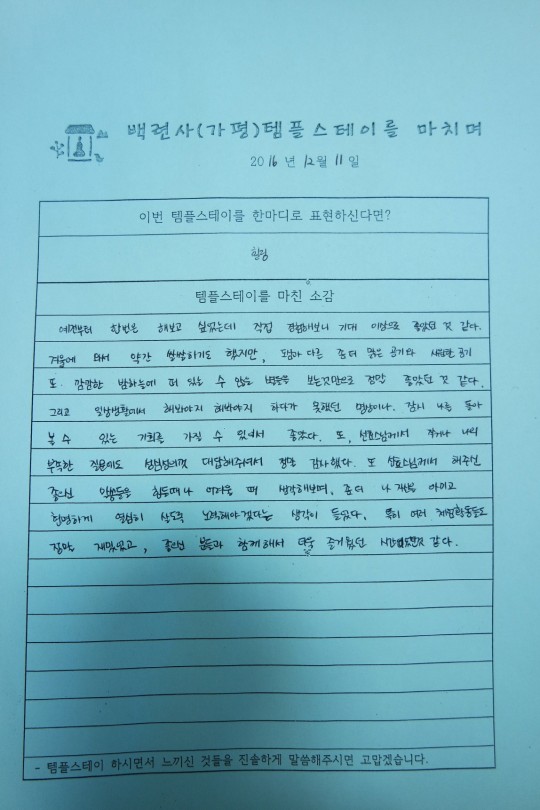 백련사(가평)템플스테이를 마치며
2016 년 12월 11 일
이번 템플스테이를 한마디로 표현하신다면?
힐링
템플스테이를 마친 소감
예전부터 한번은 해보고 싶었는데 직접 경험해보니 기대 이상으로 좋았던 것 같다.
겨울에 와서 약간 쌀쌀하기도 했지만, 도심과 다른 좀 더 맑은 공기와 시원한 공기
또 캄캄한 밤하늘에 떠 있는 수 많은 별들을 보는것만으로 정말 좋았던 것 같다.
그리고 일상생활에서 해봐야지 해봐야지 하다가 못했던 명상이나. 잠시 나를 돌아
볼 수 있는 기회를 가질 수 있어서 좋았다. 또, 스님께서 나의
부족한 질문에도 성심성의껏 대답해주셔서 정말 감사했다. 또 스님께서 해주신
좋으신 말씀들을 힘들때나 어려울 때 생각해보며, 좀 더 나 자신을 아끼고
현명하게 열심히 살도록 노력해야겠다는 생각이 들었다. 특히 여러 체험활동들도
정말 재밌었고, 좋으신 분들과 함께해서 더욱 즐거웠던 시간이었던것 같다.
- 템플스테이 하시면서 느끼신 것들을 진솔하게 말씀해주시면 고맙겠습니다.